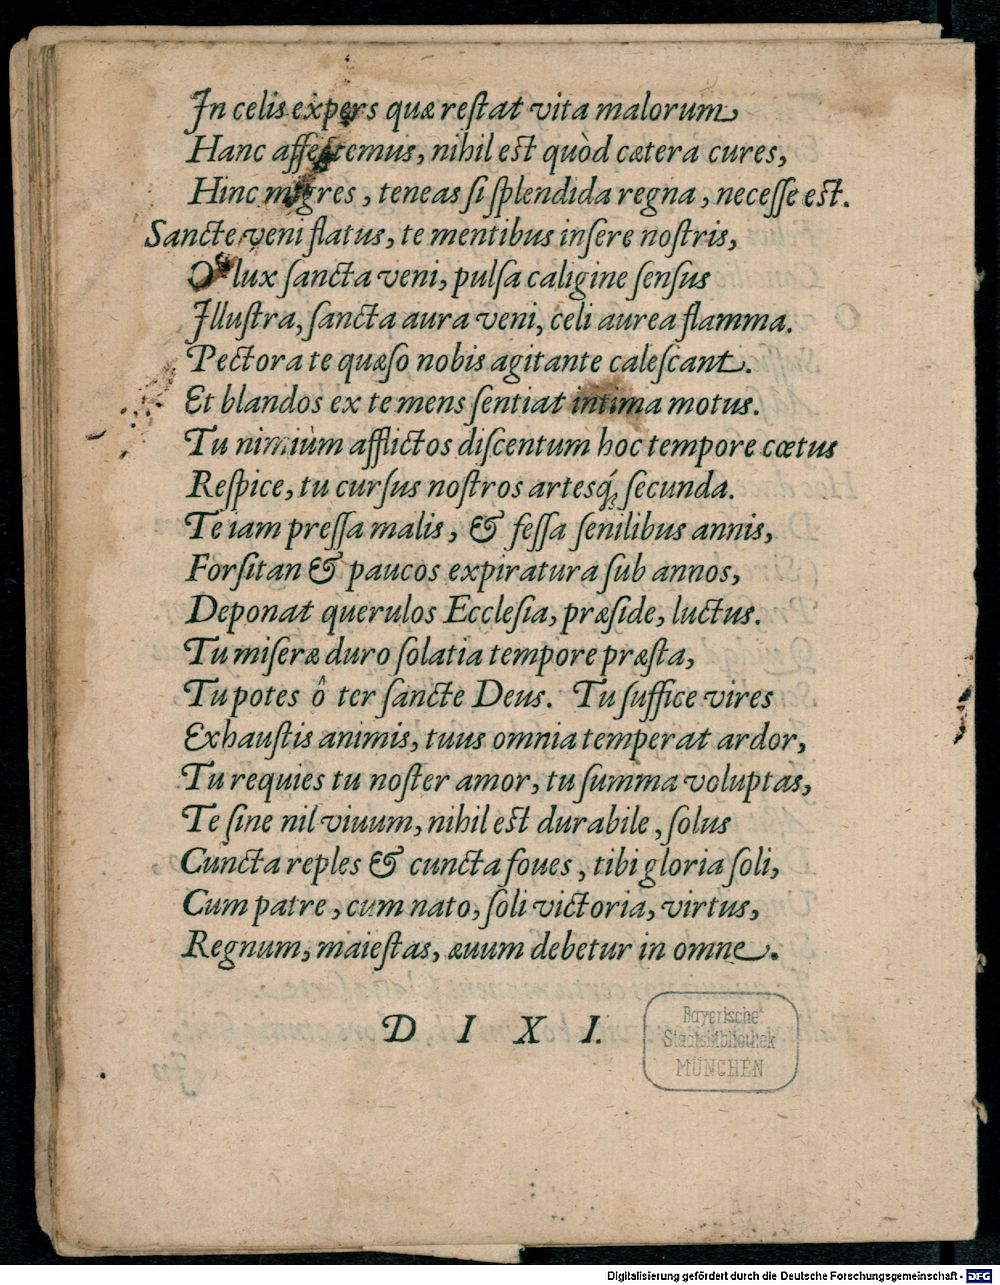 In celis expers quæ restat vita malorum
Hanc affectemus, nihil est quòd cætera cures,
Hinc migres, teneas si splendida regna, necesse est.
Sancte veni flatus, te mentibus insere nostris,
O lux sancta veni, pulsa caligine sensus
Illustra, sancta aura veni, celi aurea flamma.
Pectora te quæso nobis agitante calescant.
Et blandos ex te mens sentiat intima motus.
Tu nimiùm afflictos discentum hoc tempore cœtus
Respice, tu cursus nostros artesq́; secunda.
Te iam pressa malis, & fessa senilibus annis,
Forsitan & paucos expiratura sub annos,
Deponat querulos Ecclesia, præside, luctus.
Tu miseræ duro solatia tempore præsta,
Tu potes ô ter sancte Deus. Tu suffice vires
Exhaustis animis, tuus omnia temperat ardor,
Tu requies tu noster amor, tu summa voluptas,
Te sine nil viuum, nihil est durabile, solus
Cuncta reples & cuncta foues, tibi gloria soli,
Cum patre, cum nato, soli victoria, virtus,
Regnum, maiestas, æuum debetur in omne.
D I X I.
Bayerische
Staatsbibliothek
MÜNCHEN
Digitalisierung gefördert durch die Deutsche Forschungsgemeinschaft - DFG